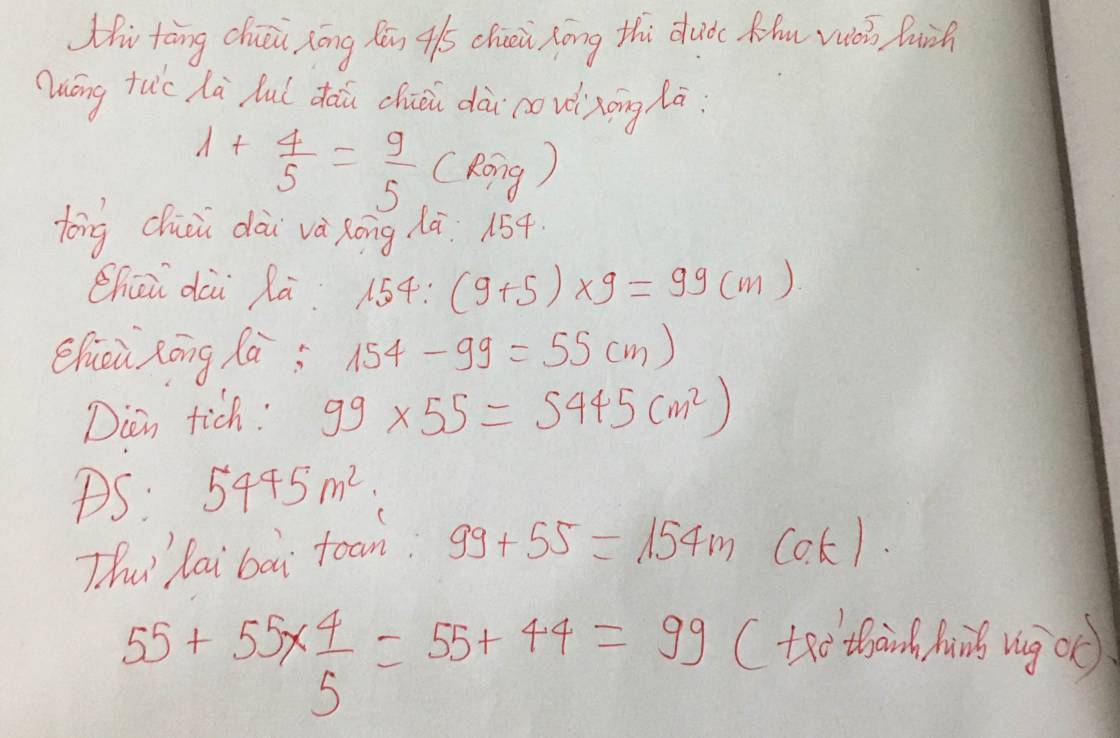 Khi tăng chiều rộng lên 4/5 chiều rộng thì được khu vườn hình
vuông tức là lúc đầu chiều dài so với rộng là:
1 + 4/5 = 9/5 (Rộng)
tổng chiều dài và rộng là: 154.
Chiều dài là: 154: (9+5) ×9 = 99 (m).
Chiều rộng là: 154 - 99 = 55 (m)
Diện tích: 99 × 55 = 5445 (m²)
ĐS: 5445 m².
Thử lại bài toán: 99 + 55 = 154m (ok).
55 + 55 × 4/5 = 55 + 44 = 99 (trở thành hình vug ok).